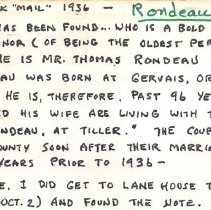 K "MAIL" 1936 - Rondeau
AS BEEN FOUND... WHO IS A BOLD
NOR (OF BEING THE OLDEST PER
E IS MR. THOMAS RONDEAU
AU WAS BORN AT GERVAIS, OR
HE IS, THEREFORE, PAST 96 YE
D HIS WIFE ARE LIVING WITH T
NDEAU, AT TILLER." THE COUP
UNTY SOON AFTER THEIR MARRI
YEARS PRIOR TO 1936 -
E, I DID GET TO LANE HOUSE T
OCT. 2) AND FOUND THE NOTE.